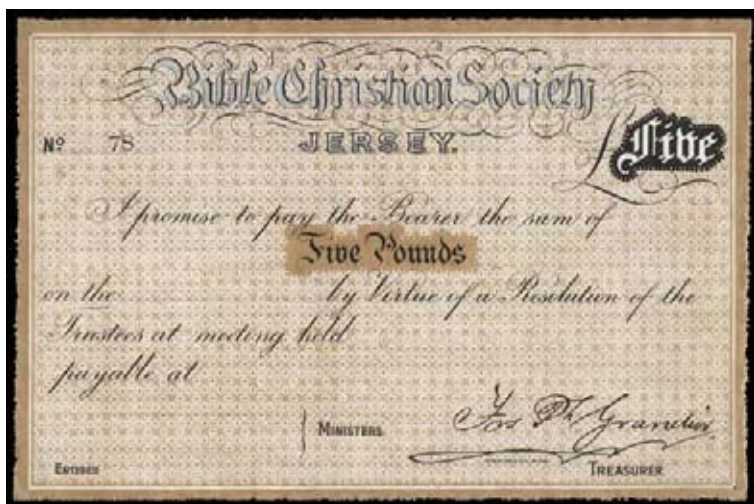 Bible Christian Society
JERSEY.
Nº 78
£Five
I promise to pay the Bearer the sum of
Five Pounds
on the by Virtue of a Resolution of the
Trustees at meeting held
payable at
MINISTERS
ENTERED
TREASURER